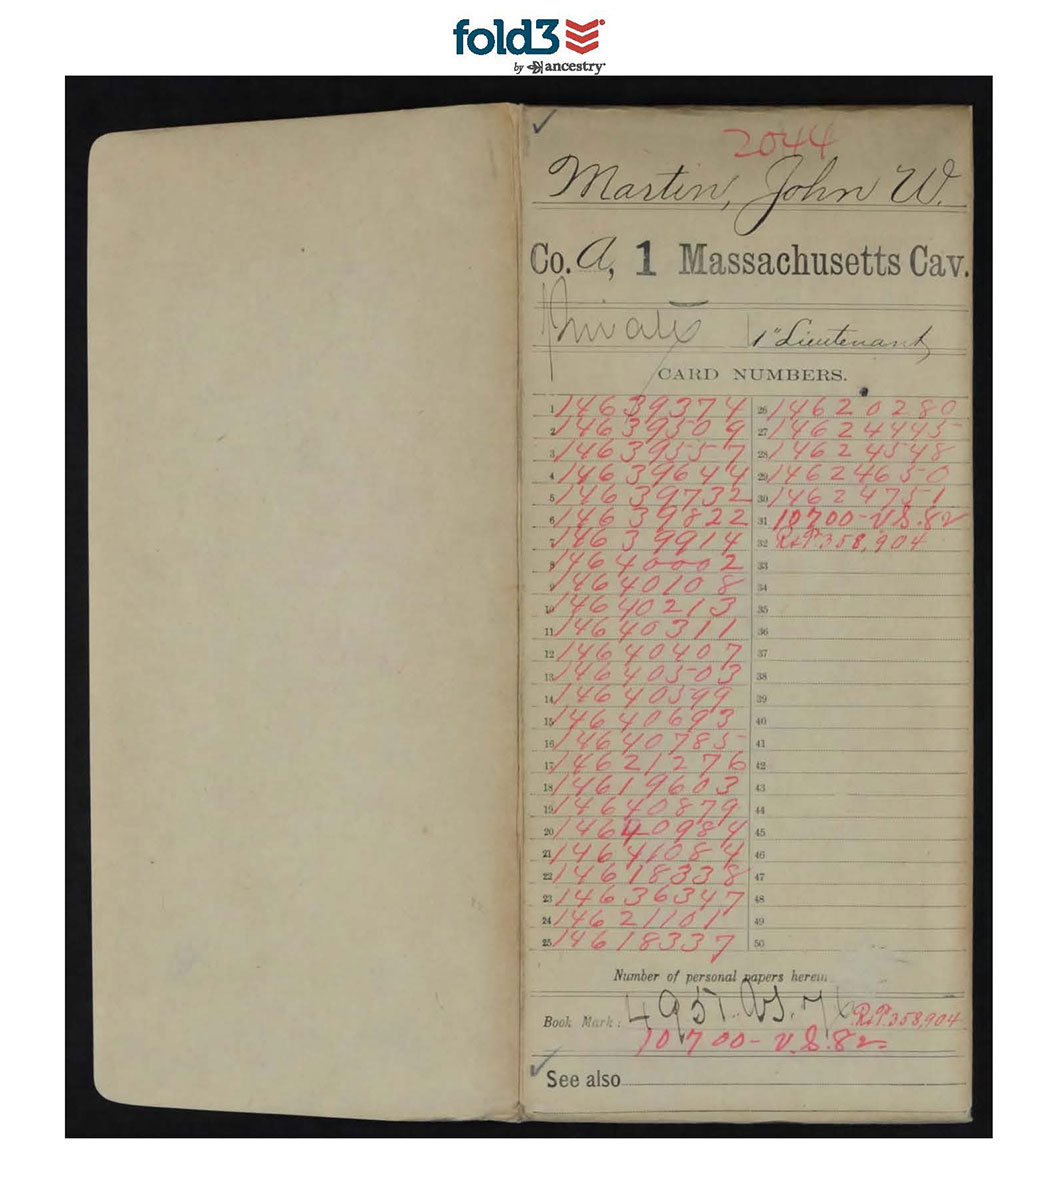 fold3
by ancestry
2044
Martin, John W.
Co. A, 1 Massachusetts Cav.
Private 1" Lieutenant
CARD NUMBERS.
1 14639374 26 14620280
2 14639509 27 14624445
3 14639557 28 14624548
4 14639644 29 14624650
5 14639732 30 14624751
6 14639822 31 10700-V.S.82
7 14639914 32 R&P.358,904
8 14640002 33
9 14640108 34
10 14640213 35
11 14640311 36
12 14640407 37
13 14640503 38
14 14640599 39
15 14640693 40
16 14640785 41
17 14621276 42
18 14619603 43
19 14640879 44
20 14640984 45
21 14641084 46
22 14618338 47
23 14636347 48
24 14621101 49
25 14618337 50
Number of personal papers herein
Book Mark: R&P.358,904
10700-V.S.82
See also